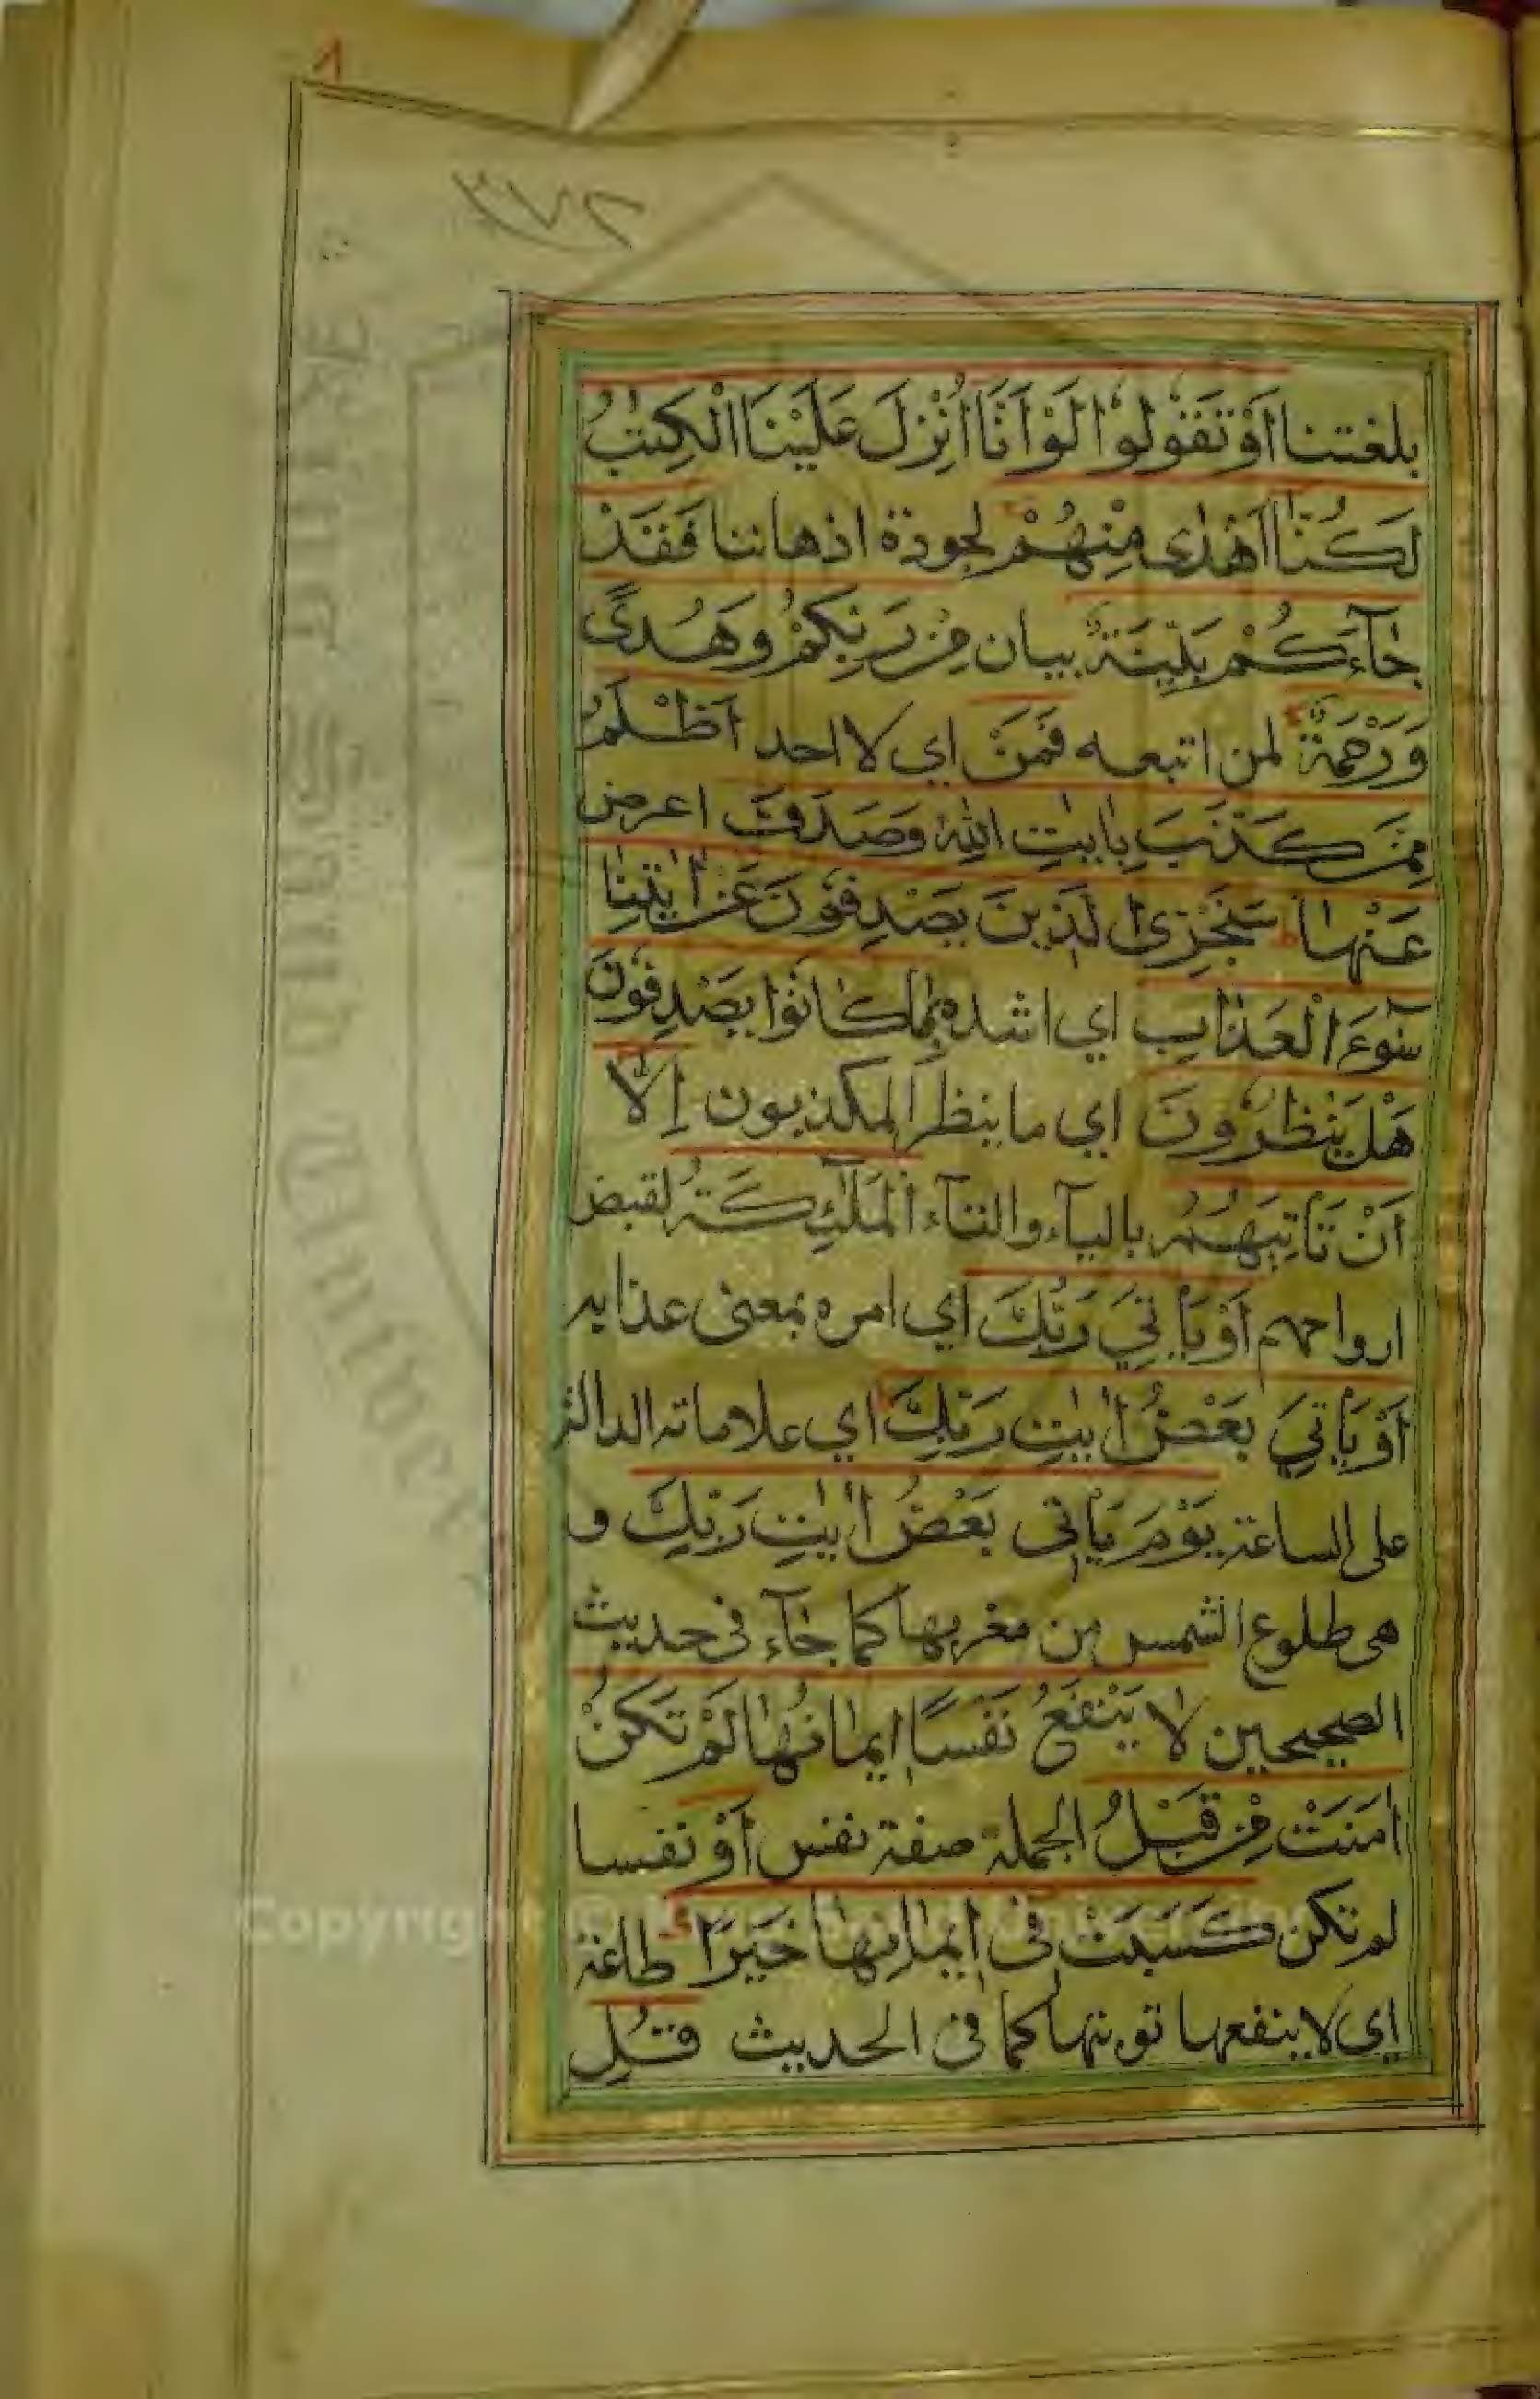 ٢٧٣
بلغتنا اَوْ تَقُوْلُوْا لَوْ اَنَّا اُنْزِلَ عَلَيْنَا الْكِتٰبُ
لَكُنَّا اَهْدٰى مِنْهُمْ لجودة اذهاننا فَقَدْ
جَآءَكُمْ بَيِّنَةٌ بيان مِّنْ رَبِّكُمْ وَهُدًى
وَرَحْمَةٌ لمن اتبعه فَمَنْ اي لا احد اَظْلَمُ
مِمَّنْ كَذَّبَ بِاٰيٰتِ اللّٰهِ وَصَدَفَ اعرض
عَنْهَا سَنَجْزِى الَّذِينَ يَصْدِفُوْنَ عَنْ اٰيٰتِنَا
سُوْٓءَ الْعَذَابِ اي اشده بِمَا كَانُوْا يَصْدِفُوْنَ
هَلْ يَنْظُرُوْنَ اي ما ينظر المكذبون اِلَّا
اَنْ تَاْتِيَهُمُ بالياء والتاء الْمَلٰٓئِكَةُ لقبض
ارواحهم اَوْ يَاْتِيَ رَبُّكَ اي امره بمعنى عذابه
اَوْ يَاْتِيَ بَعْضُ اٰيٰتِ رَبِّكَ اي علاماته الدالة
على الساعة يَوْمَ يَاْتِى بَعْضُ اٰيٰتِ رَبِّكَ و
هى طلوع الشمس من مغربها كما جآء فى حديث
الصحيحين لَا يَنْفَعُ نَفْسًا اِيمَانُهَا لَمْ تَكُنْ
اٰمَنَتْ مِنْ قَبْلُ الجملة صفة نفس اَوْ نفسا
لم تكن كَسَبَتْ فِى اِيمَانِهَا خَيْرًا طاعة
اى لا ينفعها توبتها كما فى الحديث قُلِ